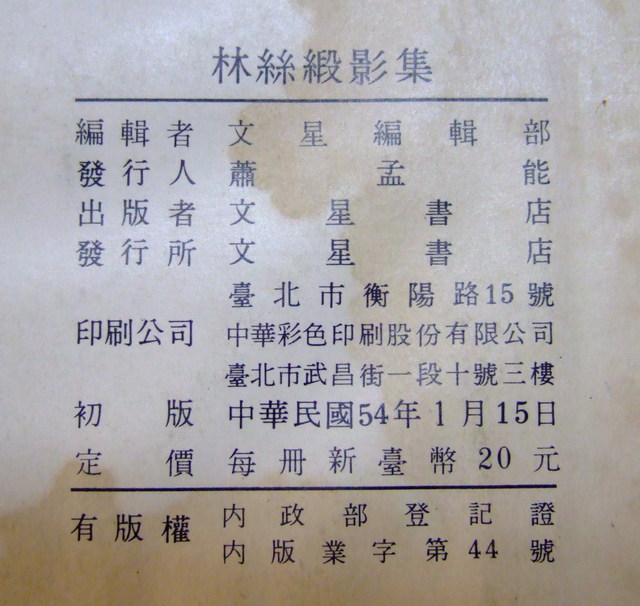 林絲緞影集
編輯者 文星編輯部
發行人 蕭孟能
出版者 文星書店
發行所 文星書店
臺北市衡陽路15號
印刷公司 中華彩色印刷股份有限公司
臺北市武昌街一段十號三樓
初版 中華民國54年1月15日
定價 每冊新臺幣20元
有版權 內政部登記證
內版業字第44號